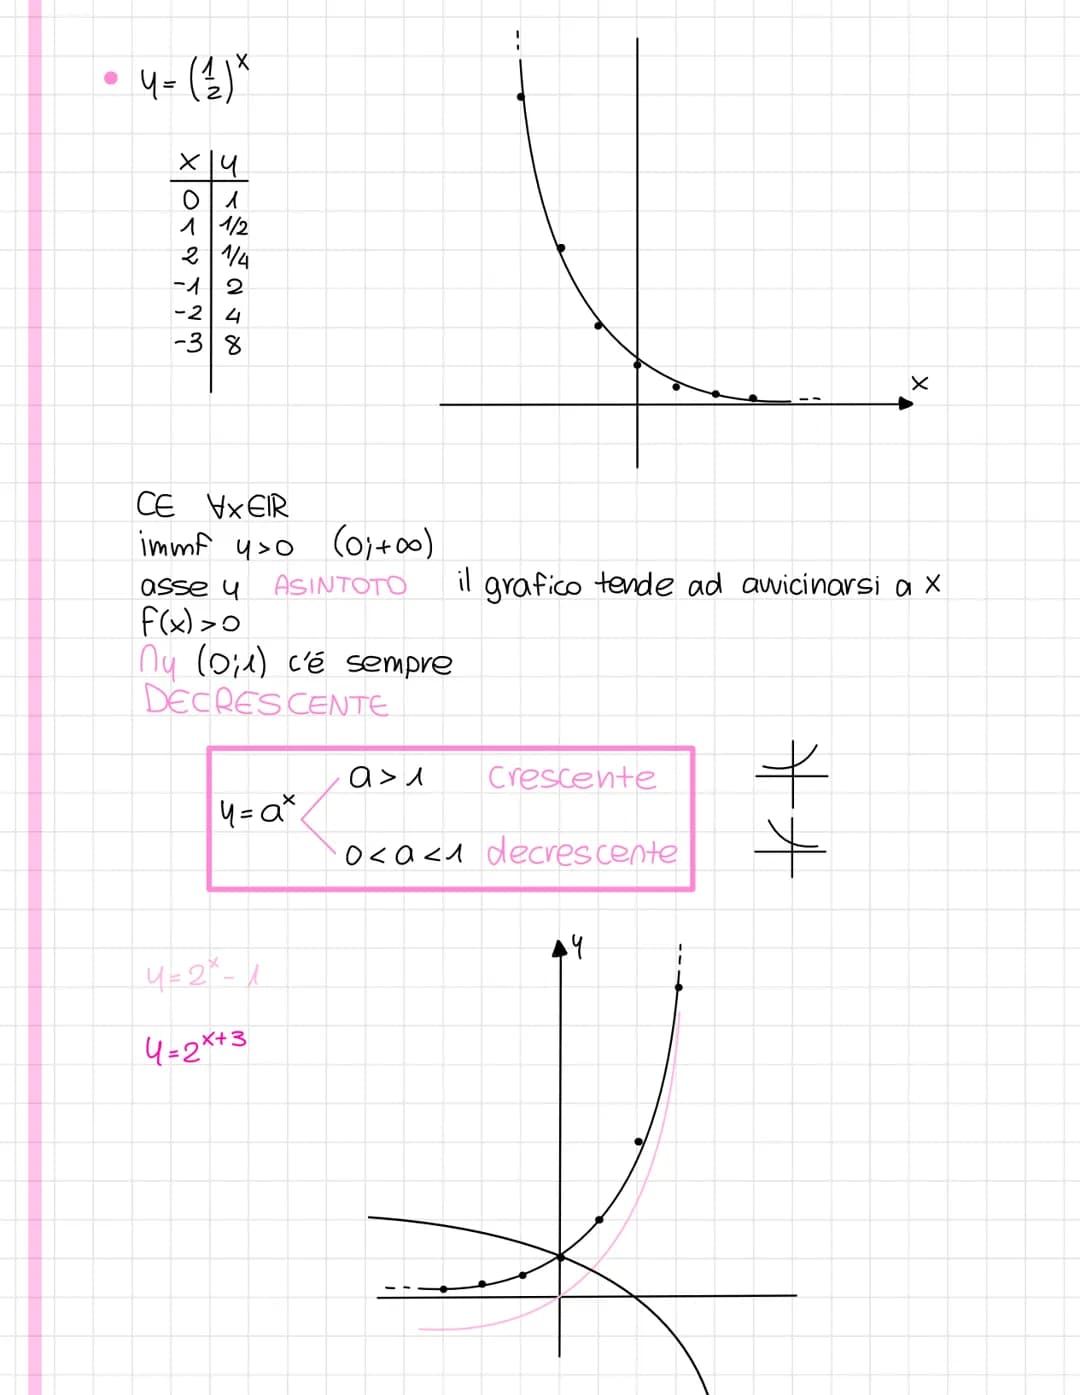 • y = (1/2)^x
x | y
0 | 1
1 | 1/2
2 | 1/4
-1 | 2
-2 | 4
-3 | 8
x
CE ∀x∈IR
immf y>0 (0;+∞)
asse y ASINTOTO il grafico tende ad avvicinarsi a x
f(x)>0
∩y (0;1) c'é sempre
DECRESCENTE
a>1 crescente
y=a^x
0<a<1 decrescente
y
y=2^x-1
y=2^x+3